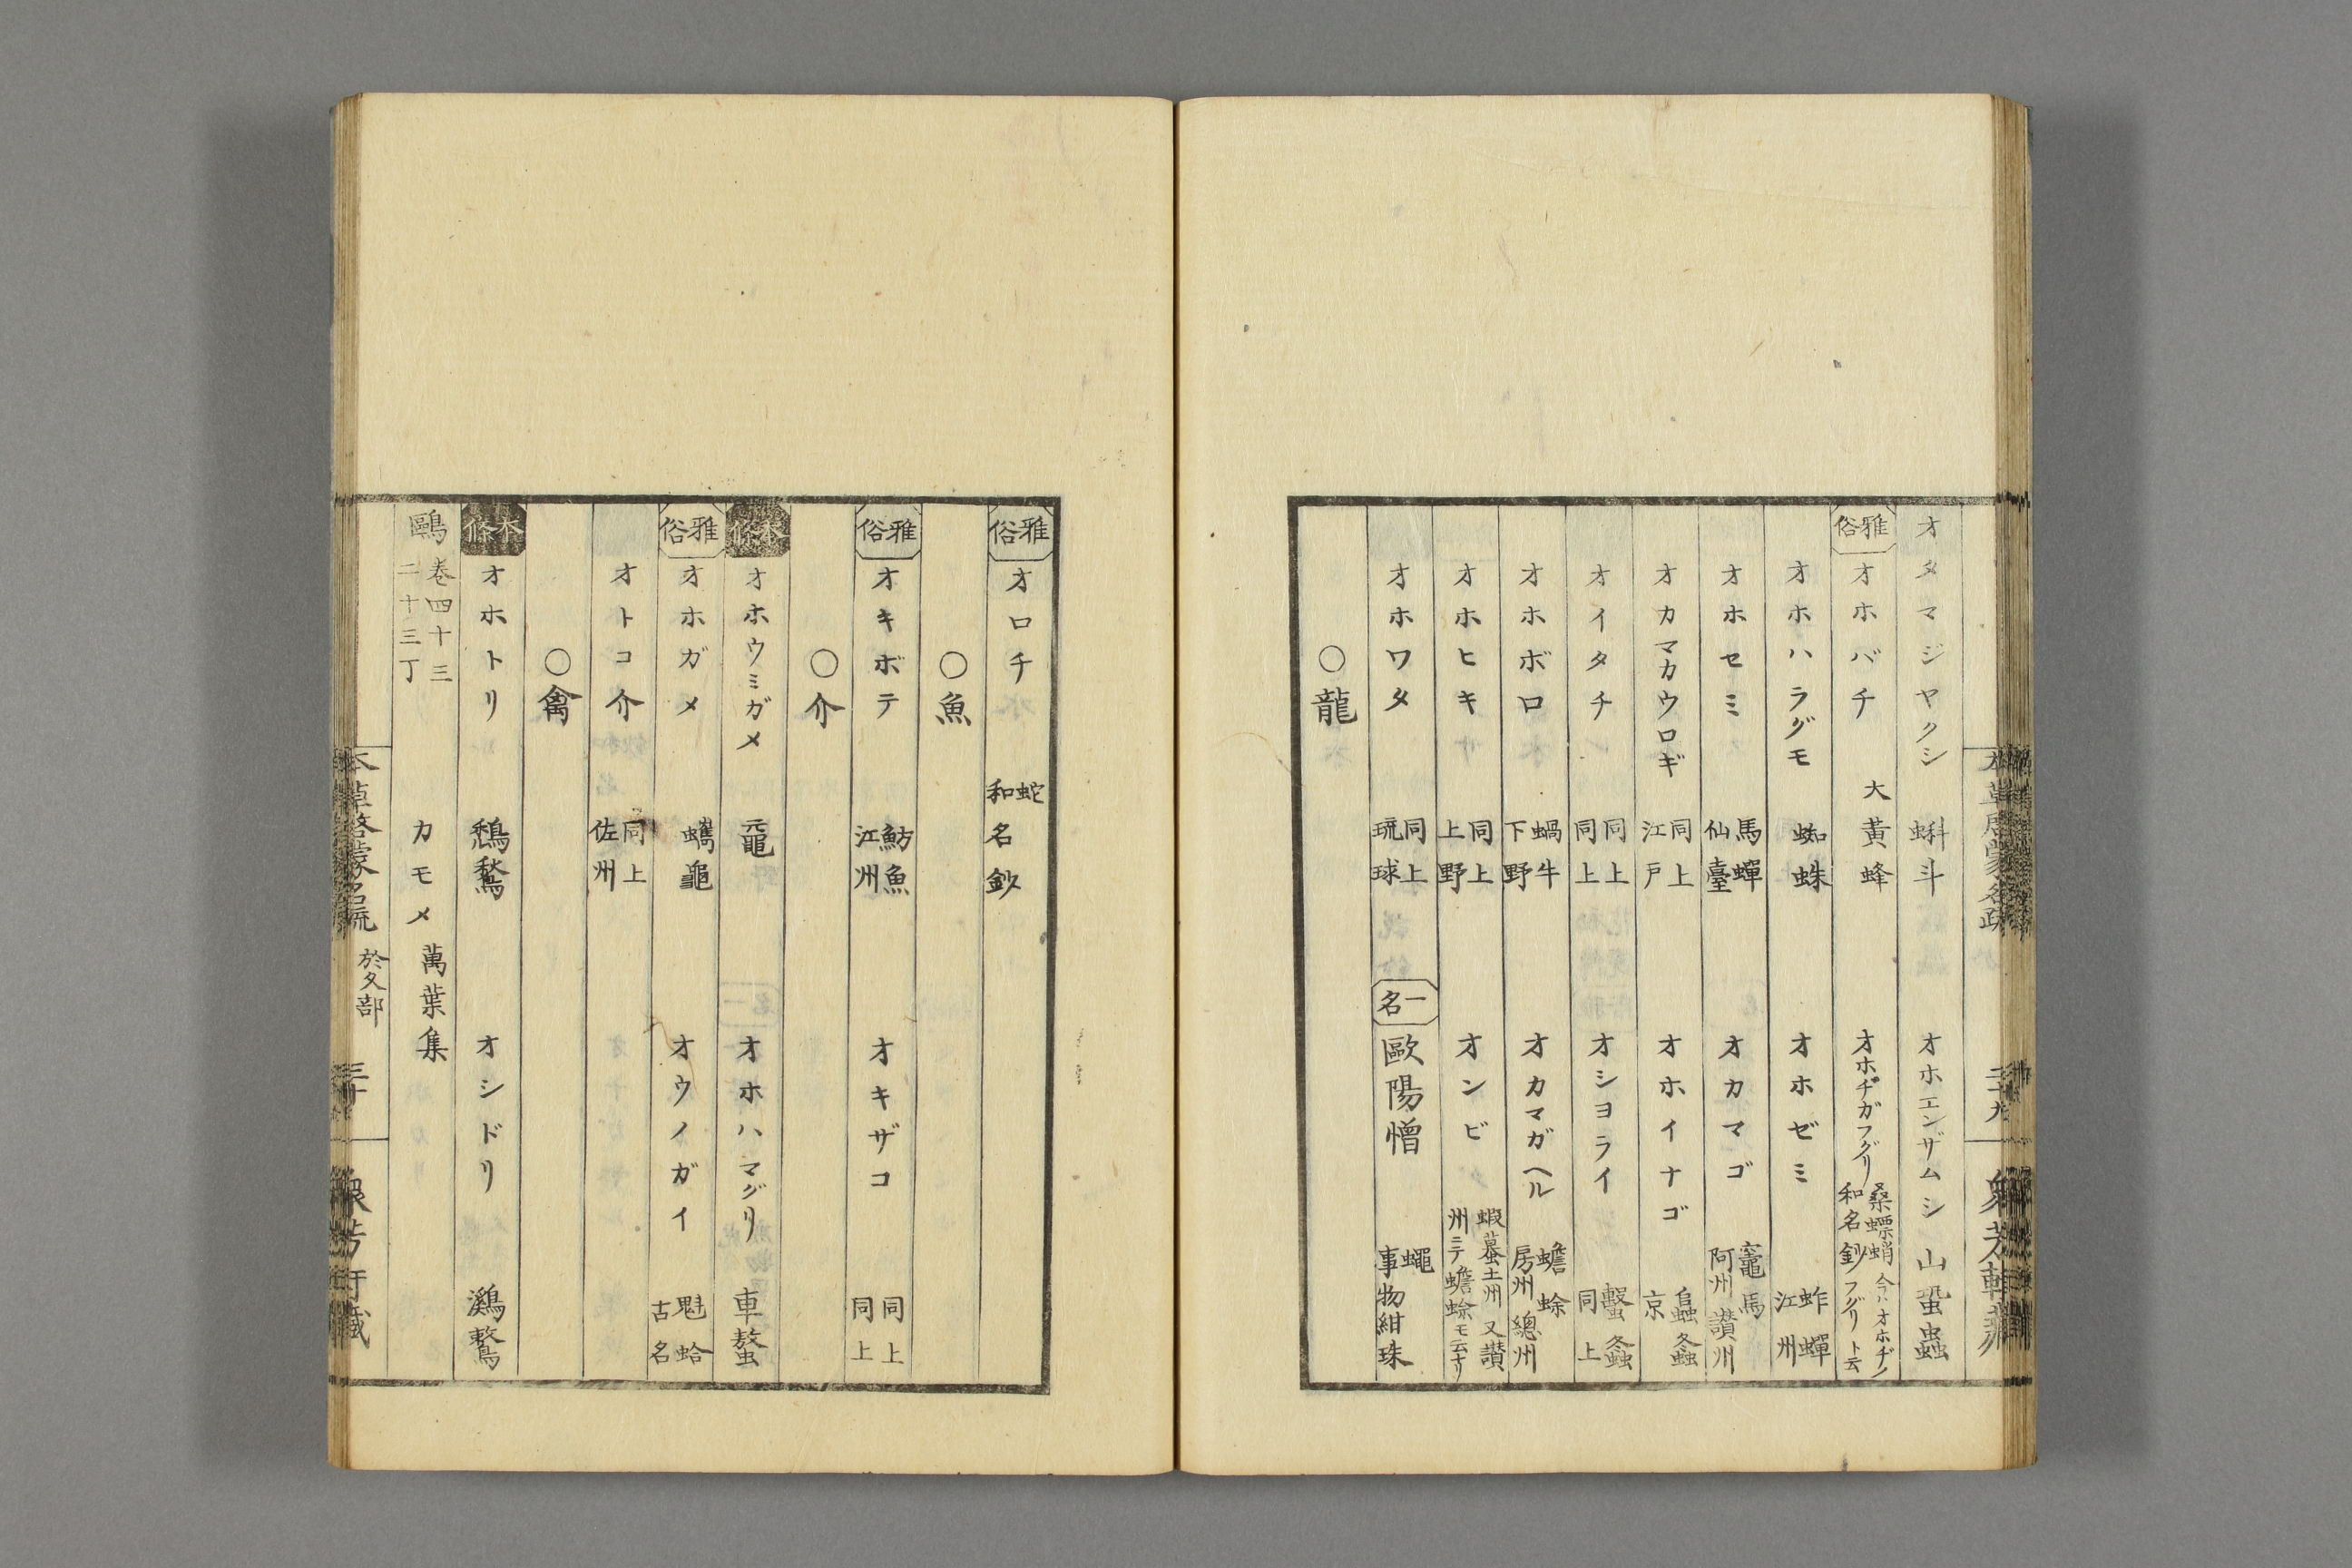 オタマジヤクシ 蝌斗 オホエンザムシ 山蛩蟲
雅俗 オホバチ 大黃蜂 オホヂガフグリ 桑螵蛸 和名鈔 今ハオホヂノフグリト云
オホハラグモ 蜘蛛 オホゼミ 蚱蟬 江州
オホセミ 馬蟬 仙臺 オカマゴ 竈馬 阿州 讃州
オカマカウロギ 同上 江戸 オホイナゴ 𧒂螽 京
オイタチ 同上 同上 オショライ 螽 同上
オホボロ 蝸牛 下野 オカマガヘル 蟾蜍 房州 總州
オホヒキ 同上 上野 オンビ 蝦蟇土州 又讃州ニテ蟾蜍モ云ナリ
オホワタ 同上 琉球 一名 歐陽憎 蠅 事物紺珠
〇龍
雅俗 オロチ 蛇 和名鈔
〇魚
雅俗 オキボテ 魴魚 江州 オキザコ 同上 同上
〇介
本條 オホウミガメ 黿 オホハマグリ 車螯
雅俗 オホガメ 蠵龜 オウノガイ 魁蛤 古名
オトコ介 同上 佐州
〇禽
本條 オホトリ 鵚鶖 オシドリ 鸂鷘
鷗 巻四十三 二十三丁 カモメ 萬葉集
本草啓蒙名疏 於夂部 三十 衆芳軒藏